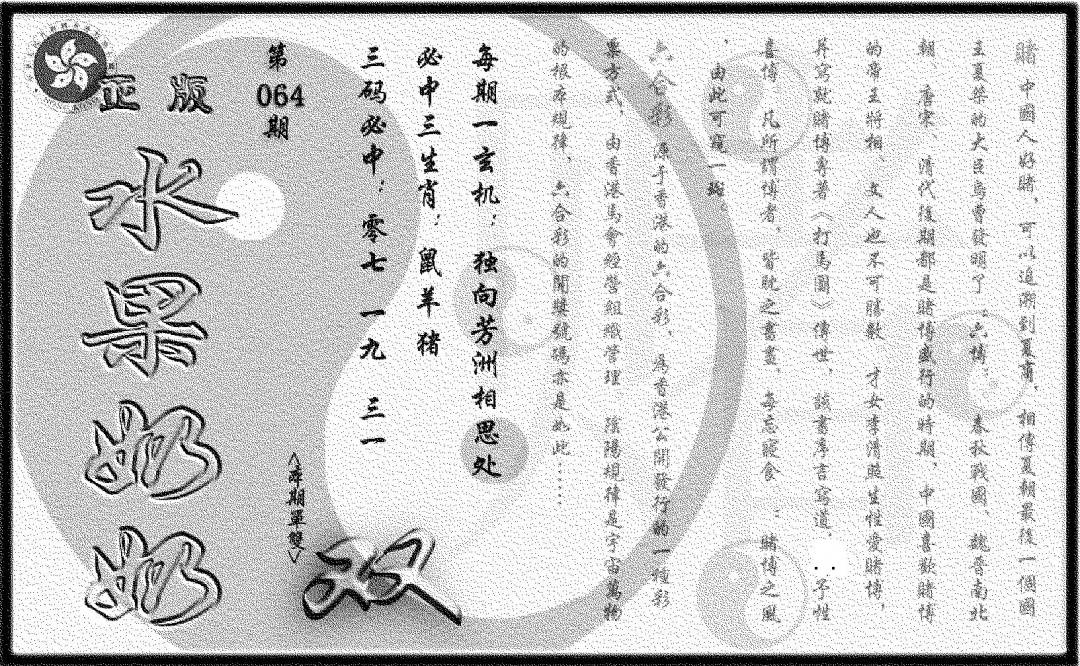 賭 中國人好賭，可以追溯到夏商，相傳夏朝最後一個國
主夏桀的大臣烏曹發明了：六博。 春秋戰國、魏晉南北
朝、唐宋、清代後期都是賭博盛行的時期，中國喜歡賭博
的帝王將相、文人也不可勝數 才女李清照生性愛賭博，
并寫就賭博專著《打馬圖》傳世，該書序言寫道，：予性
喜博 凡所謂博者，皆耽之晝晝，每忘寢食 ：賭博之風
、由此可窺一斑。
六合彩 源于香港的六合彩、 為香港公開發行的一種彩
票方式，由香港馬會經營組織管理 陰陽規律是宇宙萬物
的根本規律，六合彩的開獎號碼亦是如此……
每期一玄机：独向芳洲相思处
必中三生肖：鼠羊猪
三码必中：零七 一九 三一
第
064
期
<本期單雙>
双
正版
水果奶奶